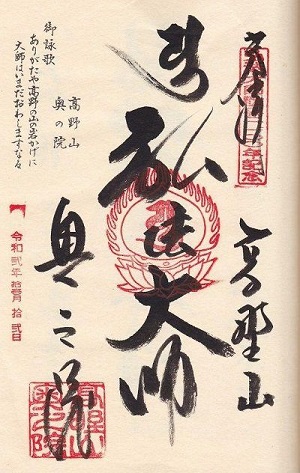 奉拝
高野山
弘法大師
奥之院
御詠歌
高野山
奥の院
ありがたや高野の山の岩かげに
大師はいまだおわしますなる
令和弐年拾壱月拾弐日